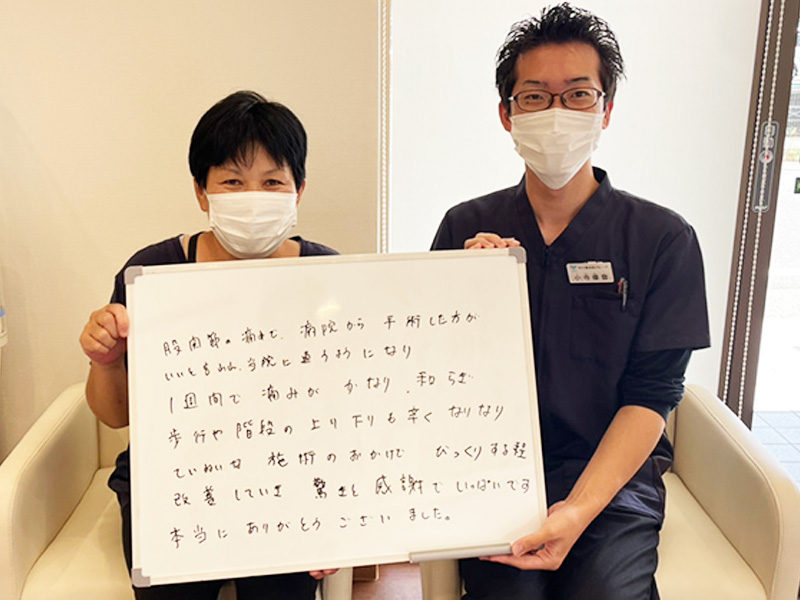 股関節の痛みで、病院から手術した方が
いいと言われ、当院に通うようになり
1週間で痛みがかなり、和らぎ
歩行や階段の上り下りも辛くなりなり
ていねいな施術のおかげでびっくりする程
改善していき驚きと感謝でいっぱいです
本当にありがとうございました。